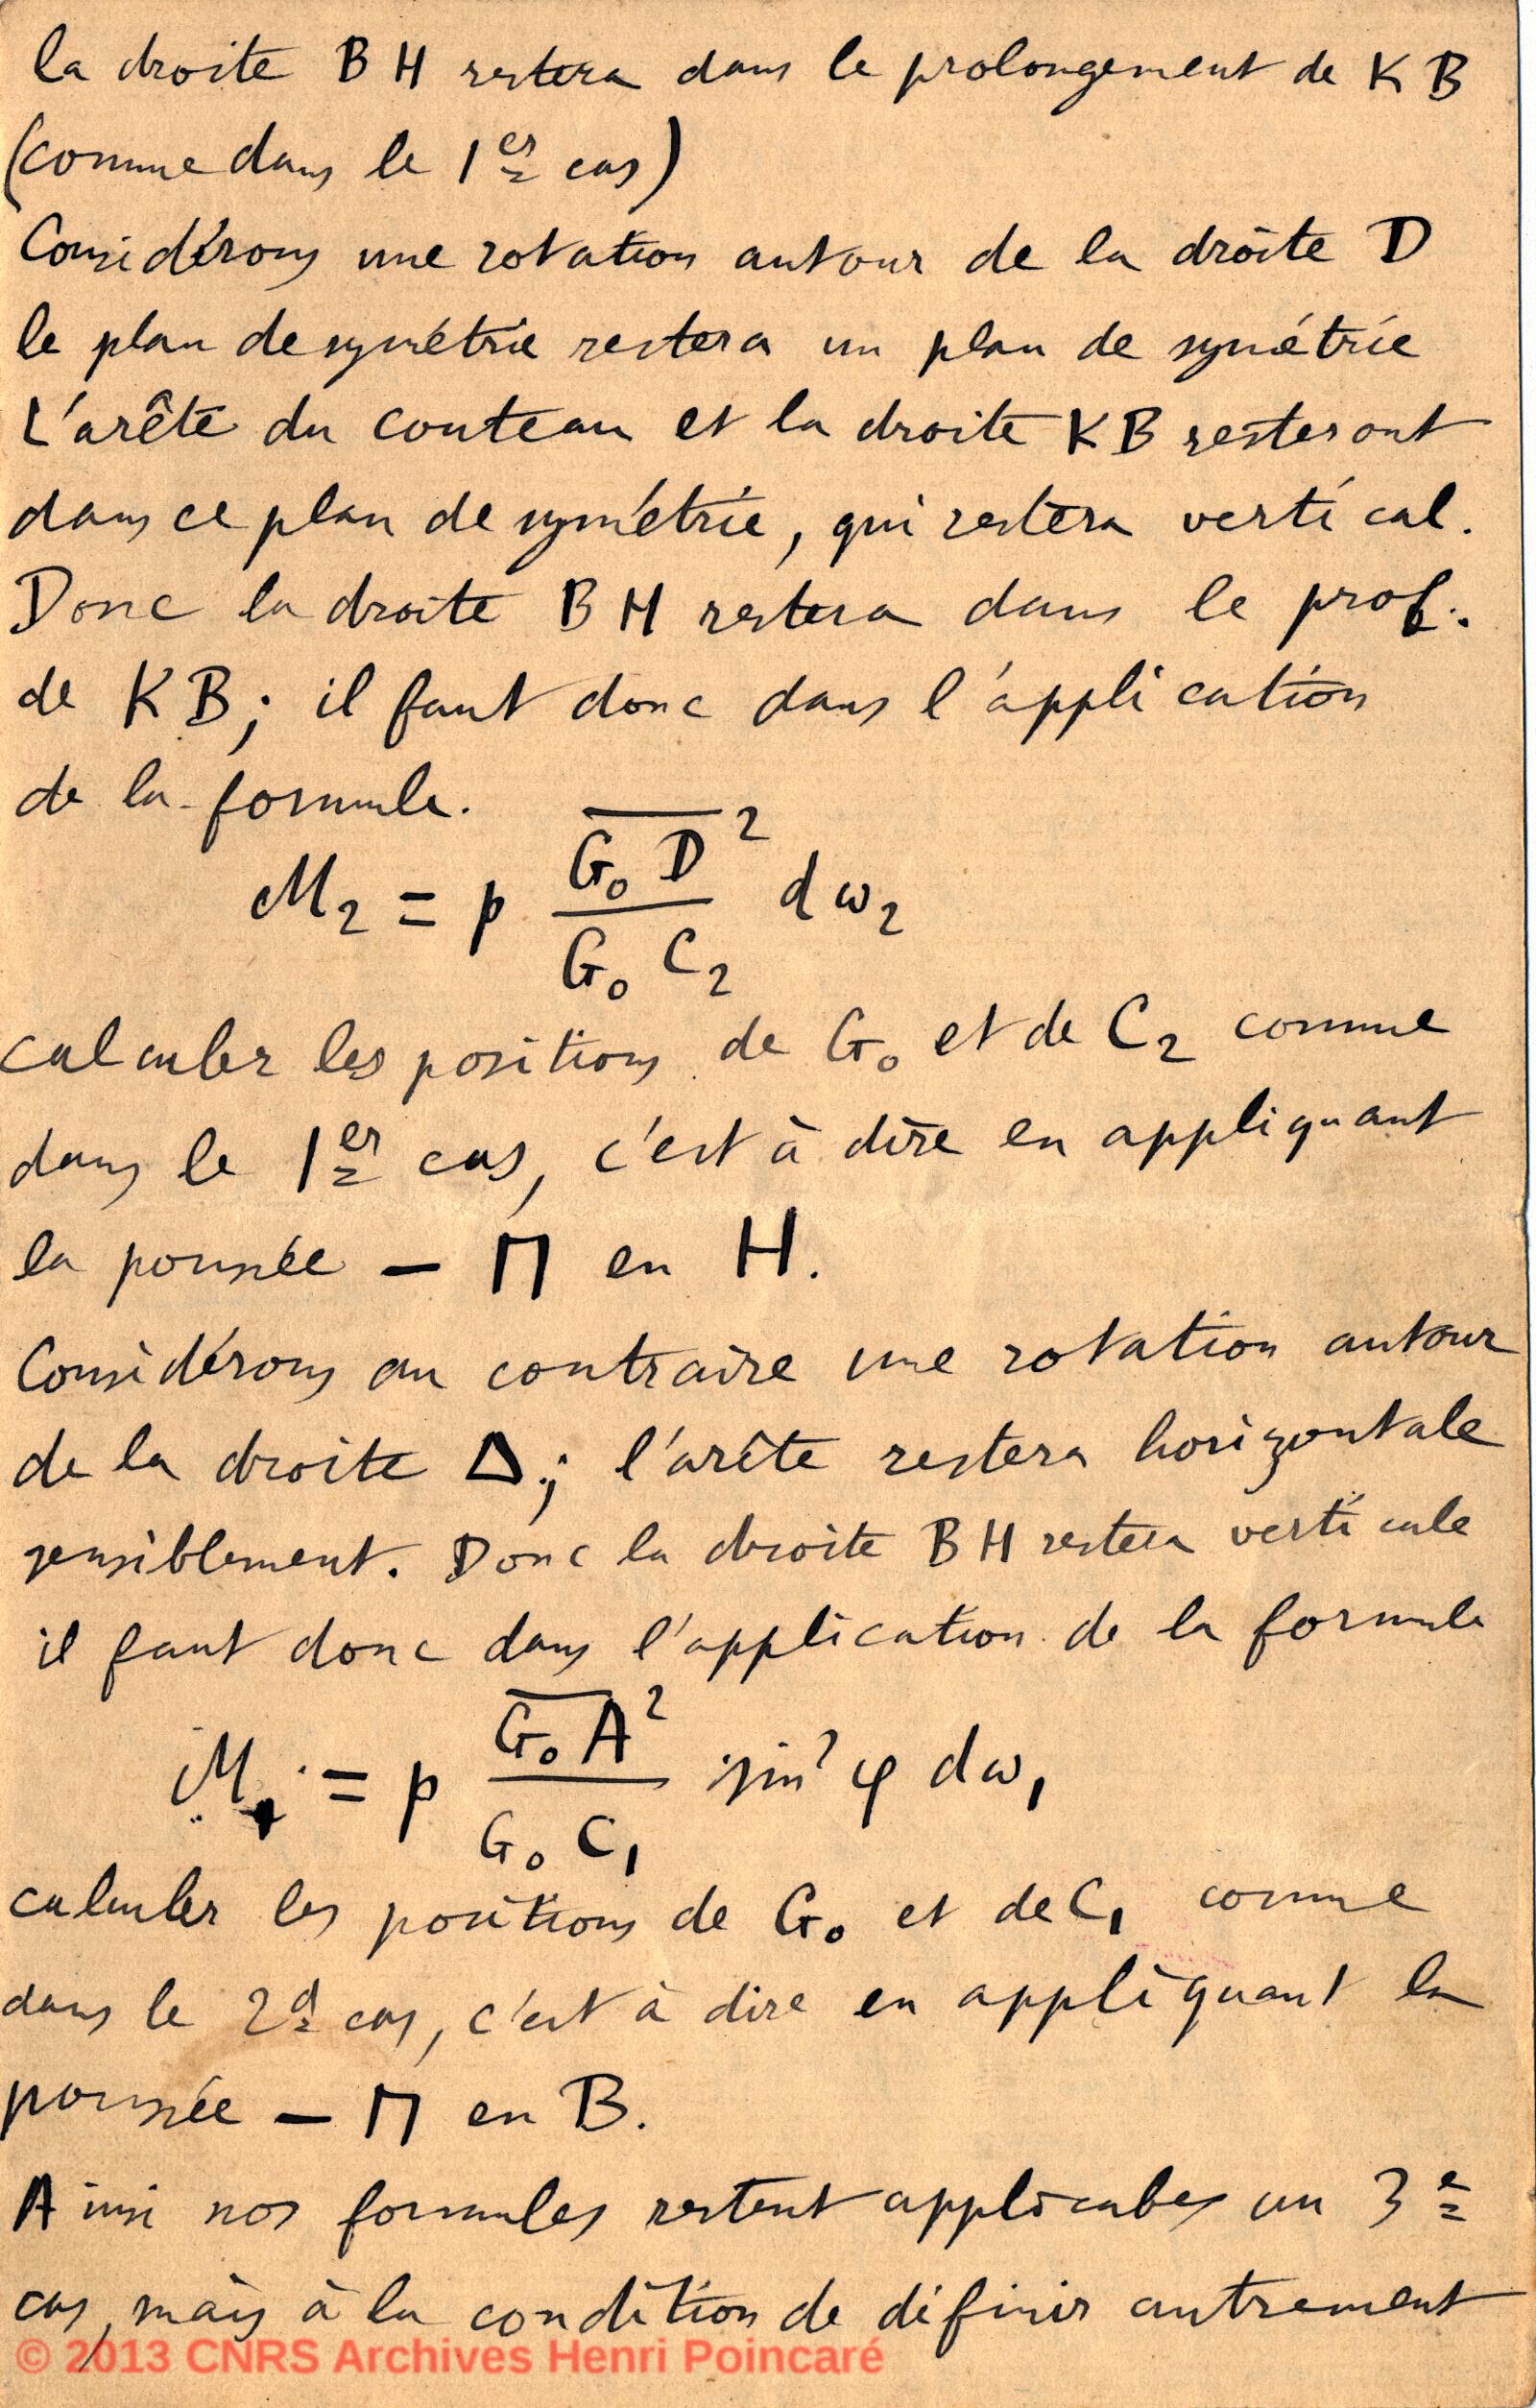 la droite BH restera dans le prolongement de KB
(comme dans le 1er cas)
Considérons une rotation autour de la droite D
le plan de symétrie restera un plan de symétrie
L'arête du couteau et la droite KB resteront
dans ce plan de symétrie, qui restera vertical.
Donc la droite BH restera dans le prol.
de KB; il faut donc dans l'application
de la formule.
M₂ = p (G₀D)² / G₀C₂ dω₂
calculer les positions de G₀ et de C₂ comme
dans le 1er cas, c'est à dire en appliquant
la poussée — Π en H.
Considérons au contraire une rotation autour
de la droite Δ; l'arête restera horizontale
sensiblement. Donc la droite BH restera verticale
il faut donc dans l'application de la formule
M₁ = p (G₀A)² / G₀C₁ sin² φ dω₁
calculer les positions de G₀ et de C₁ comme
dans le 2d cas, c'est à dire en appliquant la
poussée — Π en B.
Ainsi nos formules restent applicables au 3e
cas, mais à la condition de définir autrement
© 2013 CNRS Archives Henri Poincaré